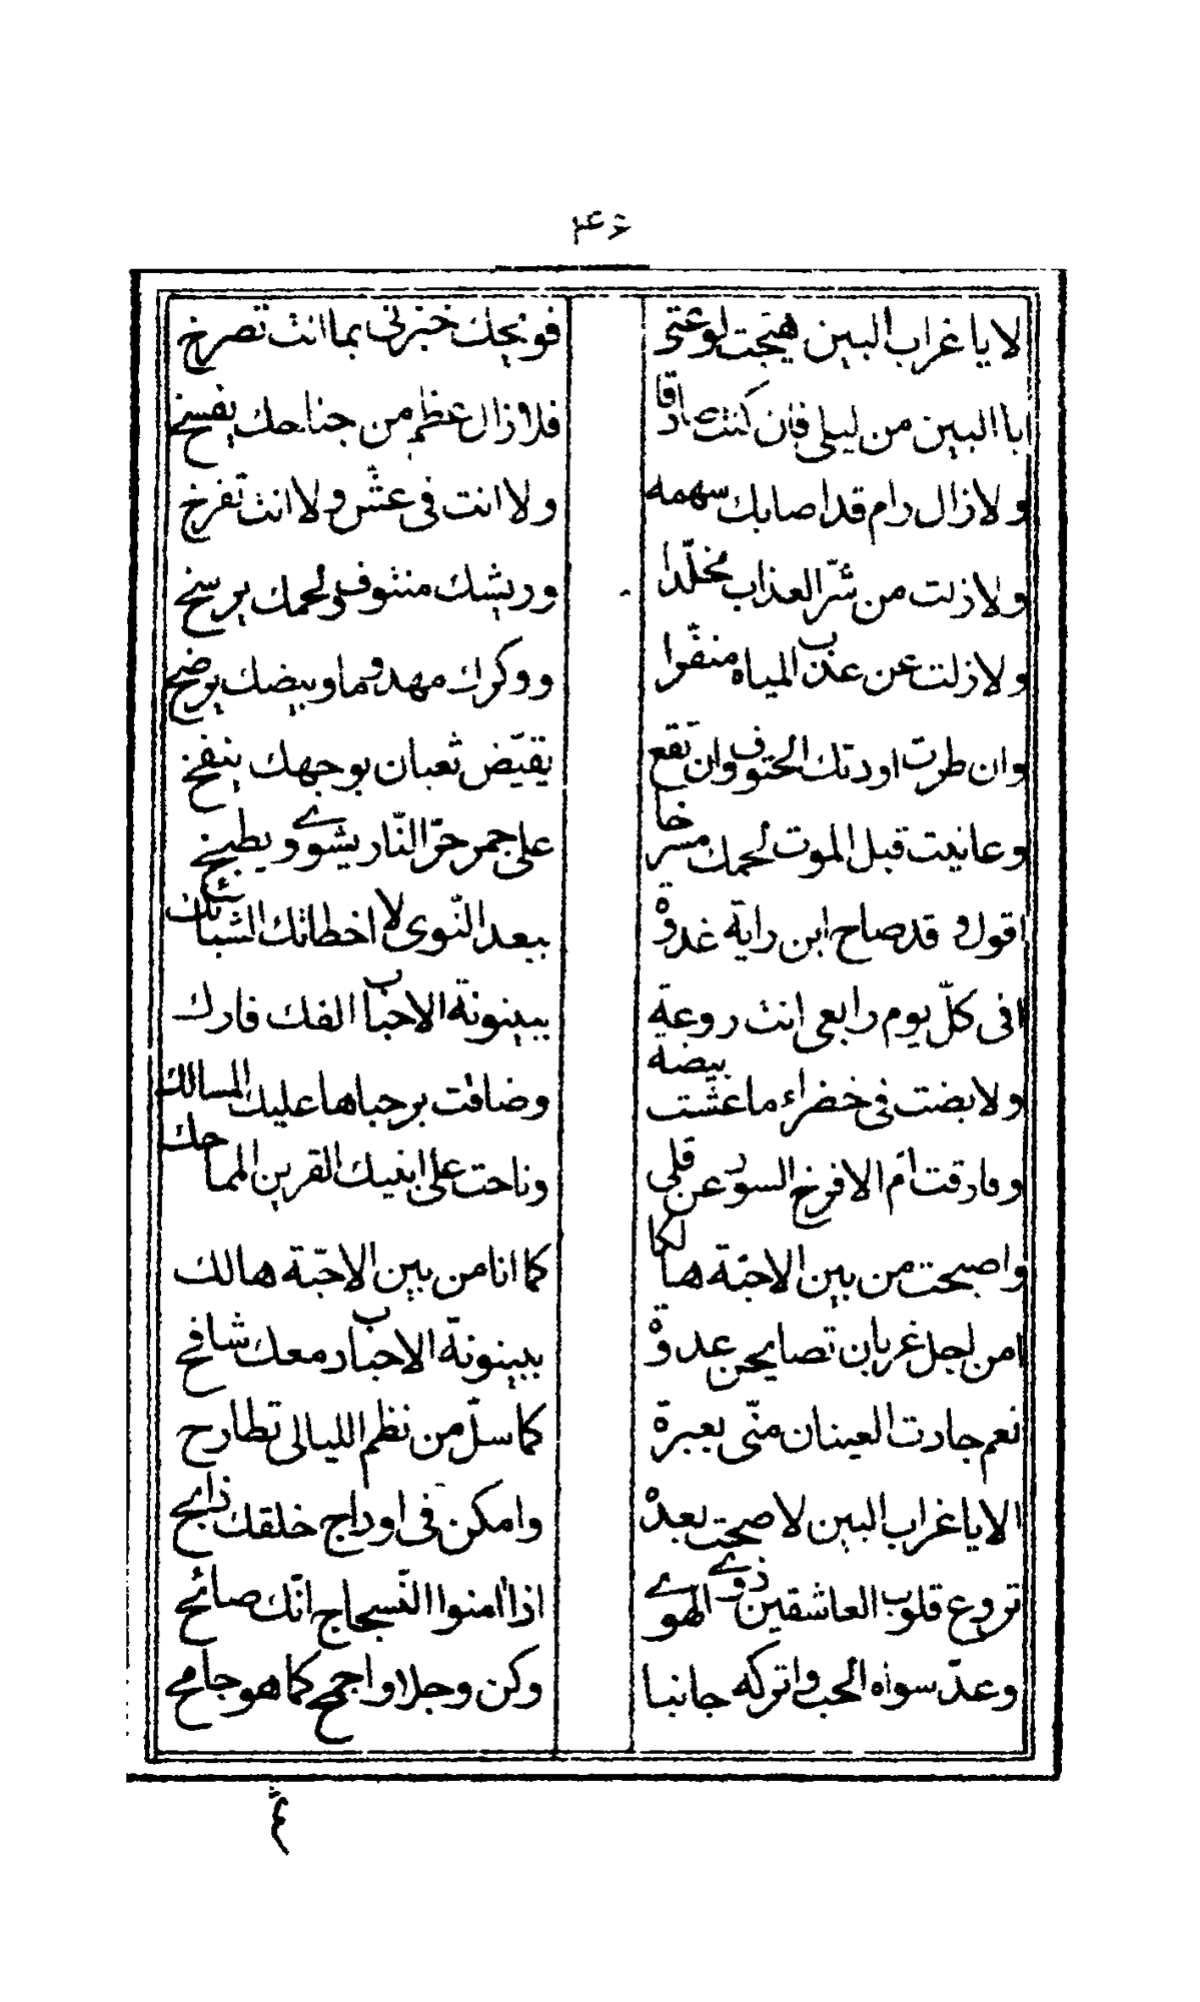 ٣٤٦
لا يا غراب البين هيّجت لوعتى فويحك خبرنى بما انت تصرخ
ابا البين من ليلى فان كنت صادقا فلا زال عظم من جناحك يفسخ
ولا زال رام قد اصابك سهمه ولا انت فى عشّ ولا انت تفرخ
ولا زلت من شرّ العذاب مخلّدا وريشك منتوف ولحمك يرسخ
ولا زلت عن عذب المياه منفّرا ووكرك مهدوما وبيضك يرضخ
وان طرت اودتك الحتوف وان تقع يقيّض ثعبان بوجهك ينفخ
وعاينت قبل الموت لحمك مشرخا على جمر حرّ النّار يشوى ويطبخ
اقول و قد صاح ابن راية غدوة ببعد النّوى لا اخطاتك الشبائك
افى كلّ يوم رابعى انت روعة ببينونة الاحباب الفك فارك
ولا بضت فى خضراء ما عشت بيضه وضاقت برحباها عليك المسالك
وفارقت امّ الافرخ السود عن قلى وناحت على ابنيك القرين المماحك
واصبحت من بين الاحبّة هالكا كما انا من بين الاحبّة هالك
امن اجل غربان تصايحن غدوة ببينونة الاحباب دمعك سافح
نعم جادت العينان منّى بعبرة كما سلّ من نظم الليالى تطارح
الا يا غراب البين لا صحت بعده وامكن فى اوداج خلقك ذابح
تروع قلوب العاشقين ذوى الهوى اذا امنوا التّسجاج انّك صائح
وعدّ سواه الحب واتركه جانبا وكن وجلا واجمح كما هو جامح